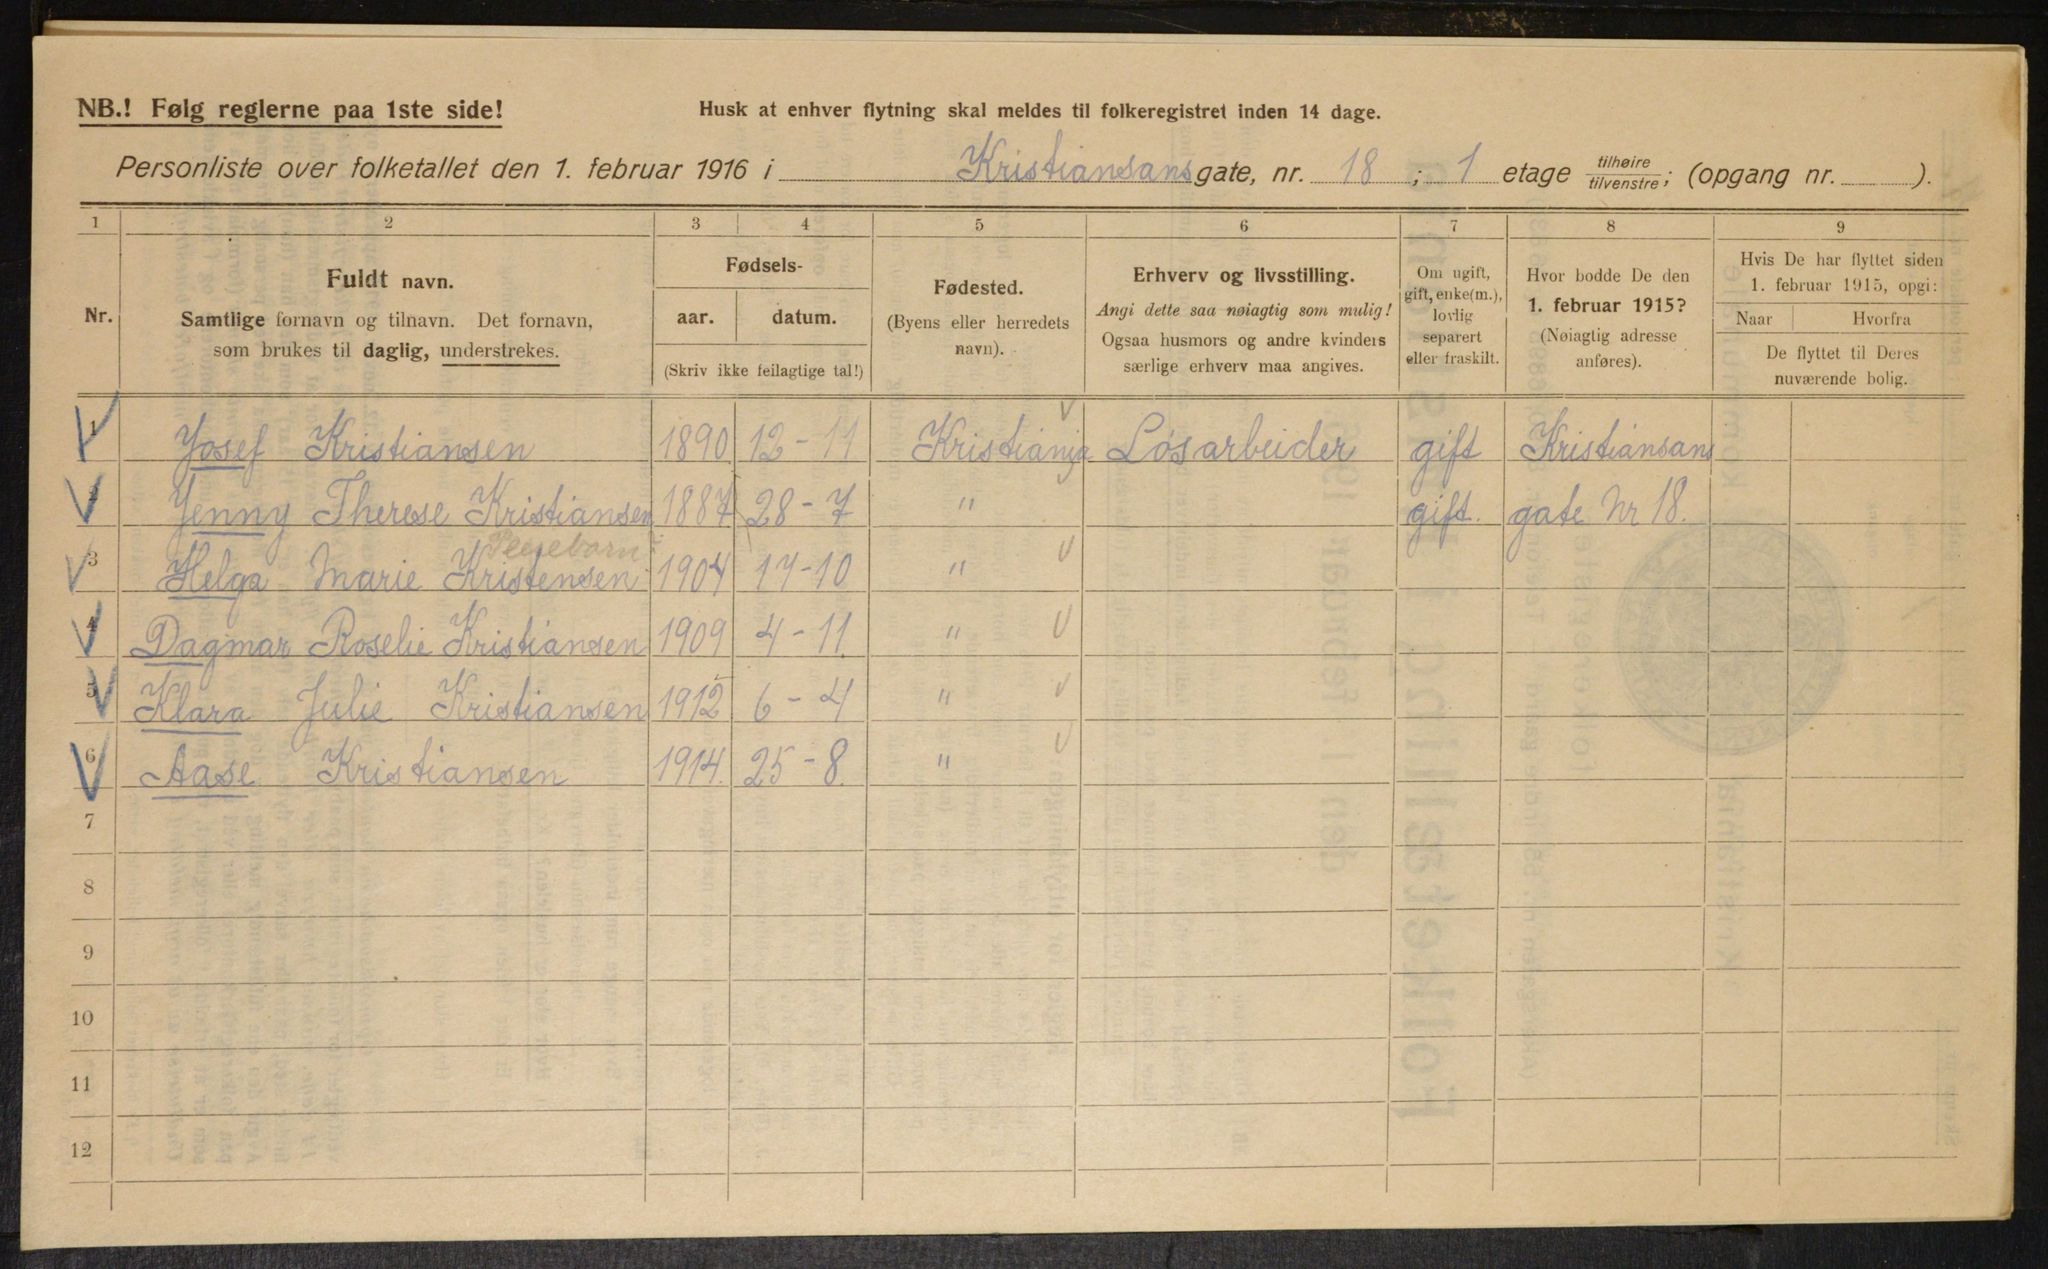 NB.! Følg reglerne paa 1ste side!
Husk at enhver flytning skal meldes til folkeregistret inden 14 dage.
Personliste over folketallet den 1. februar 1916 i Kristiansans gate, nr. 18 ; 1 etage tilhøire/tilvenstre; (opgang nr. ).
1 2 3 4 5 6 7 8 9
Nr.
Fuldt navn.
Samtlige fornavn og tilnavn. Det fornavn,
som brukes til daglig, understrekes.
Fødsels-
aar. datum.
(Skriv ikke feilagtige tal!)
Fødested.
(Byens eller herredets
navn).
Erhverv og livsstilling.
Angi dette saa nøiagtig som mulig!
Ogsaa husmors og andre kvinders
særlige erhverv maa angives.
Om ugift,
gift, enke(m.),
lovlig
separert
eller fraskilt.
Hvor bodde De den
1. februar 1915?
(Nøiagtig adresse
anføres).
Hvis De har flyttet siden
1. februar 1915, opgi:
Naar Hvorfra
De flyttet til Deres
nuværende bolig.
1 Josef Kristiansen 1890 12-11 Kristiania Løsarbeider gift Kristiansans
2 Jenny Therese Kristiansen 1887 28-7 " gift. gate Nr 18.
Pleiebarn
3 Helga Marie Kristensen 1904 17-10 "
4 Dagmar Roselie Kristiansen 1909 4-11 "
5 Klara Julie Kristiansen 1912 6-4 "
6 Aase Kristiansen 1914. 25-8. "
7
8
9
10
11
12